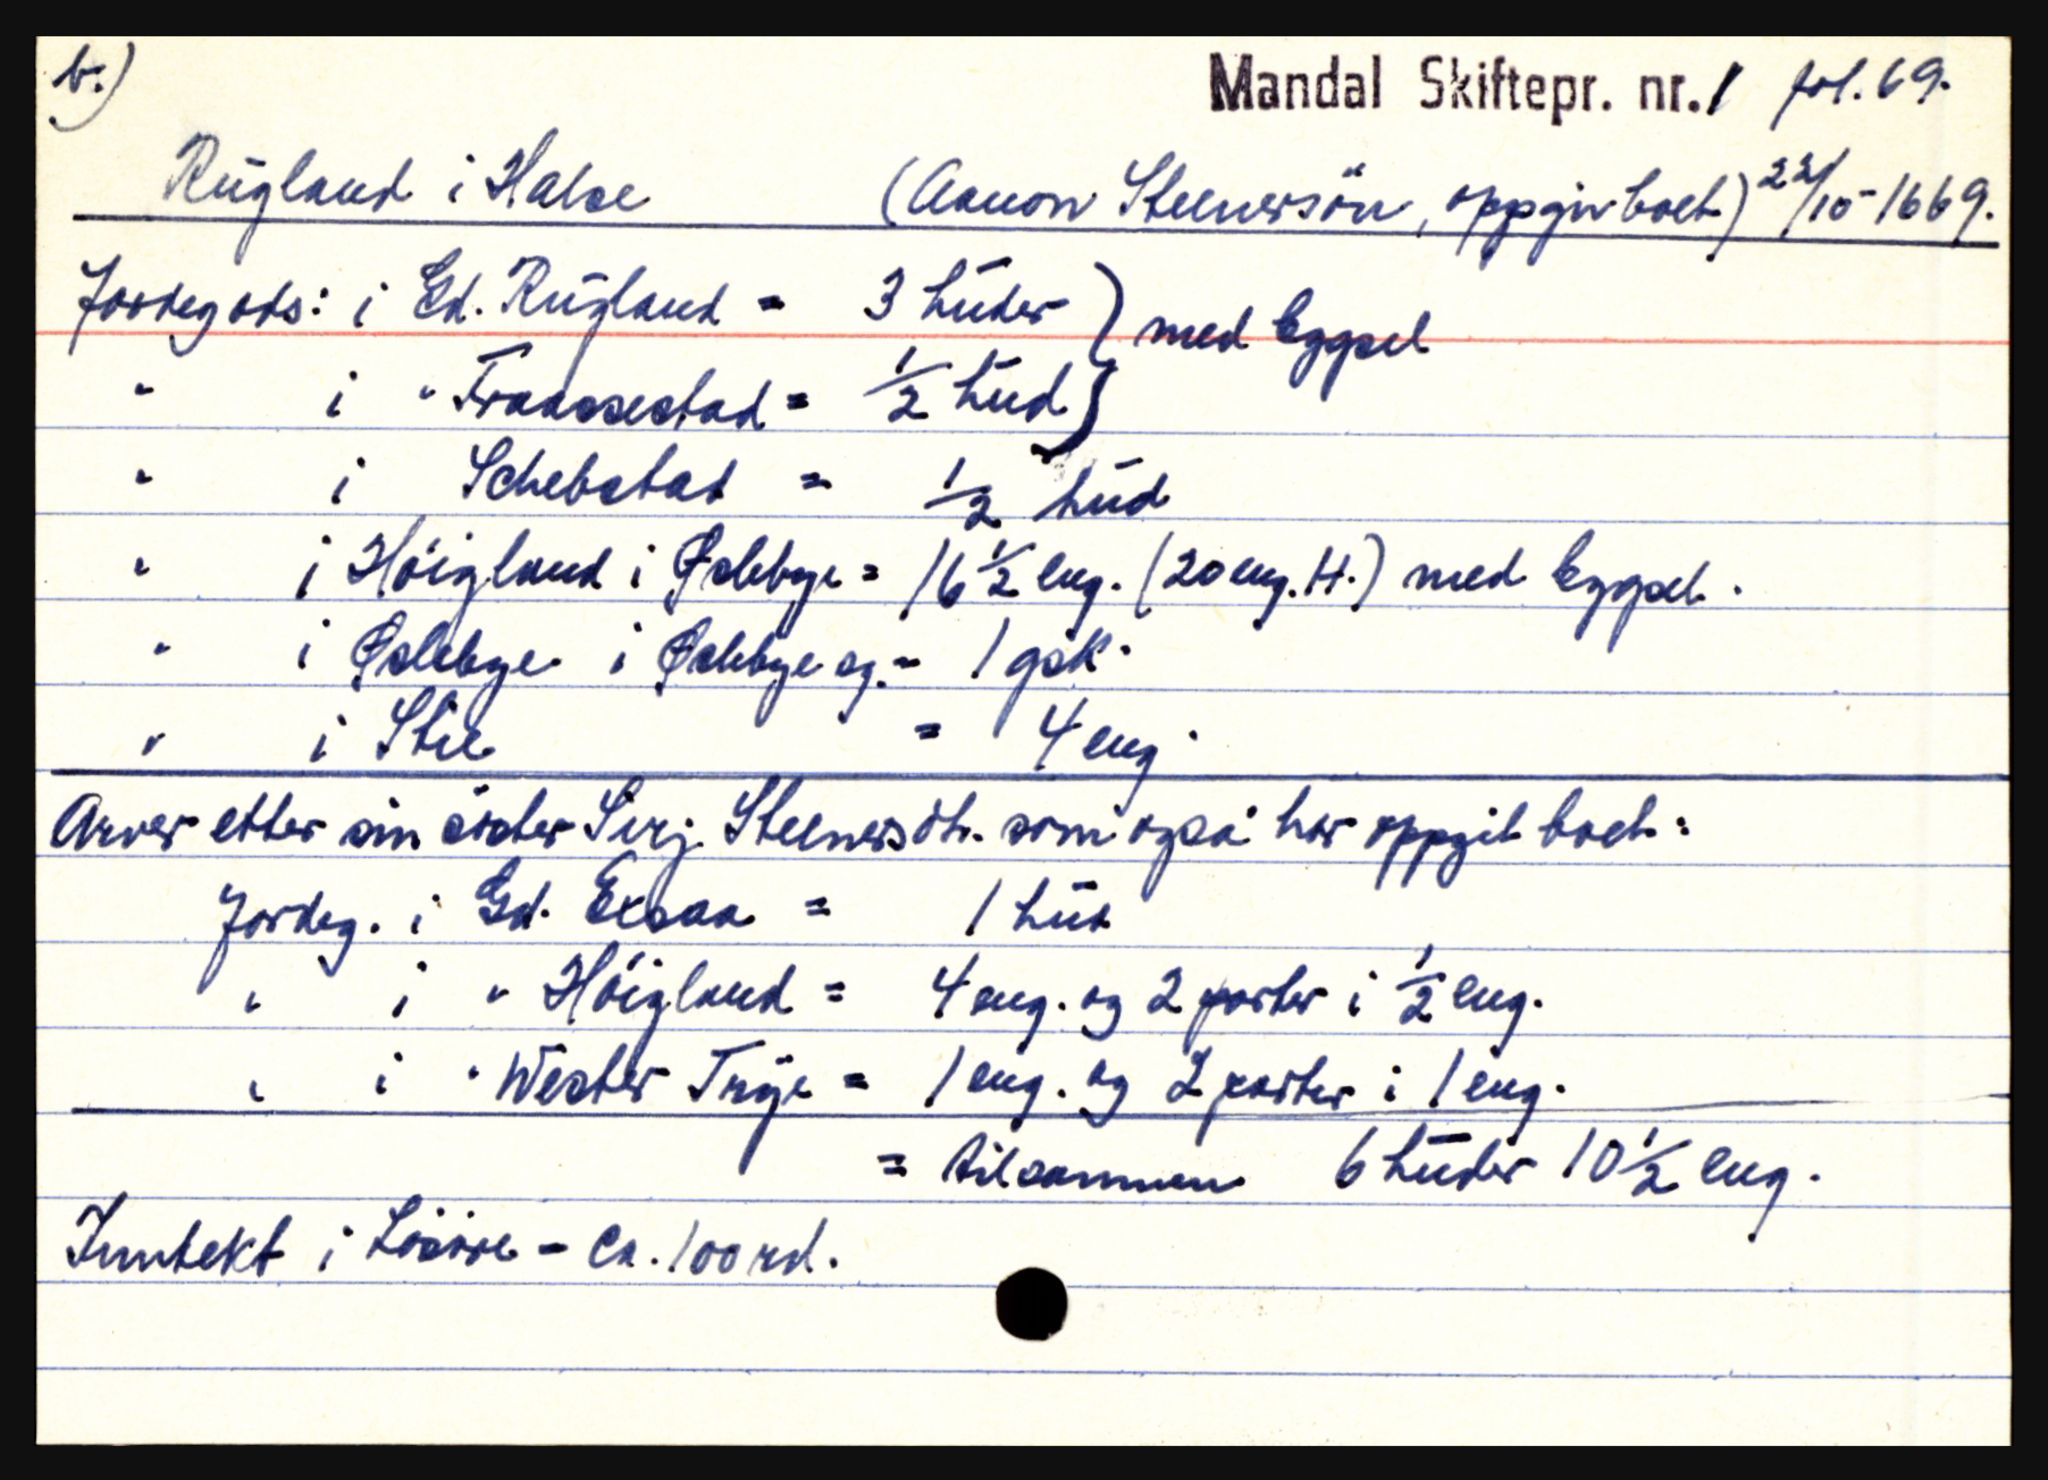 b.)
Mandal Skiftepr. nr. 1 fol. 69.
Rŭgland i Halse (Aanon Steenersön, oppgir boet) 22/10-1669.
Jordegods: i Gd. Rŭgland = 3 hŭder } med bygsel
" i " Fraassestad = ½ hŭd }
" i Schebstad = ½ hŭd
" i Höigland i Øslebye = 16 ½ eng. (20 eng. H.) med bygsel.
" i Øslebye i Øslebye sg. - 1 gsk.
" i Stie = 4 eng.
Arver etter sin söster Sirj. Steenersdtr. som også har oppgit boet:
Jordeg. i Gd. Exsaa = 1 hŭd
" i " Höigland = 4 eng. og 2 parter i ½ eng.
" i " Wester Trÿe = 1 eng. og 2 parter i 1 eng.
= tilsammen 6 hŭder 10 ½ eng.
Inntekt i Lösöre - ca. 100 rd.